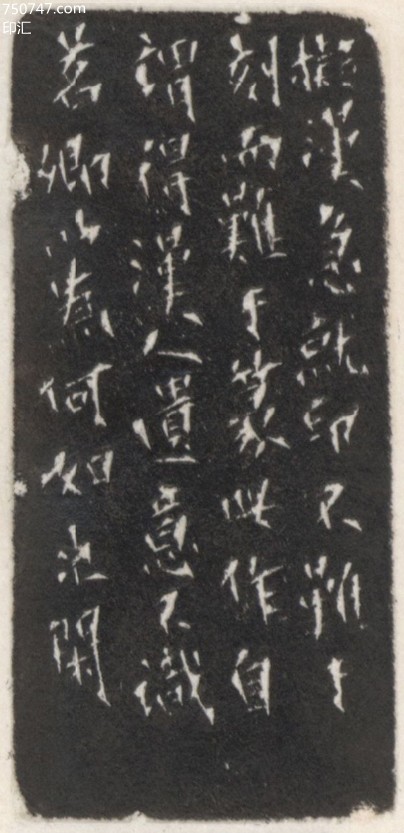 750747.com
印汇
擬漢急就印不難于
刻而難于篆此作自
謂得漢人遺意不識
茗卿以為何如次閑